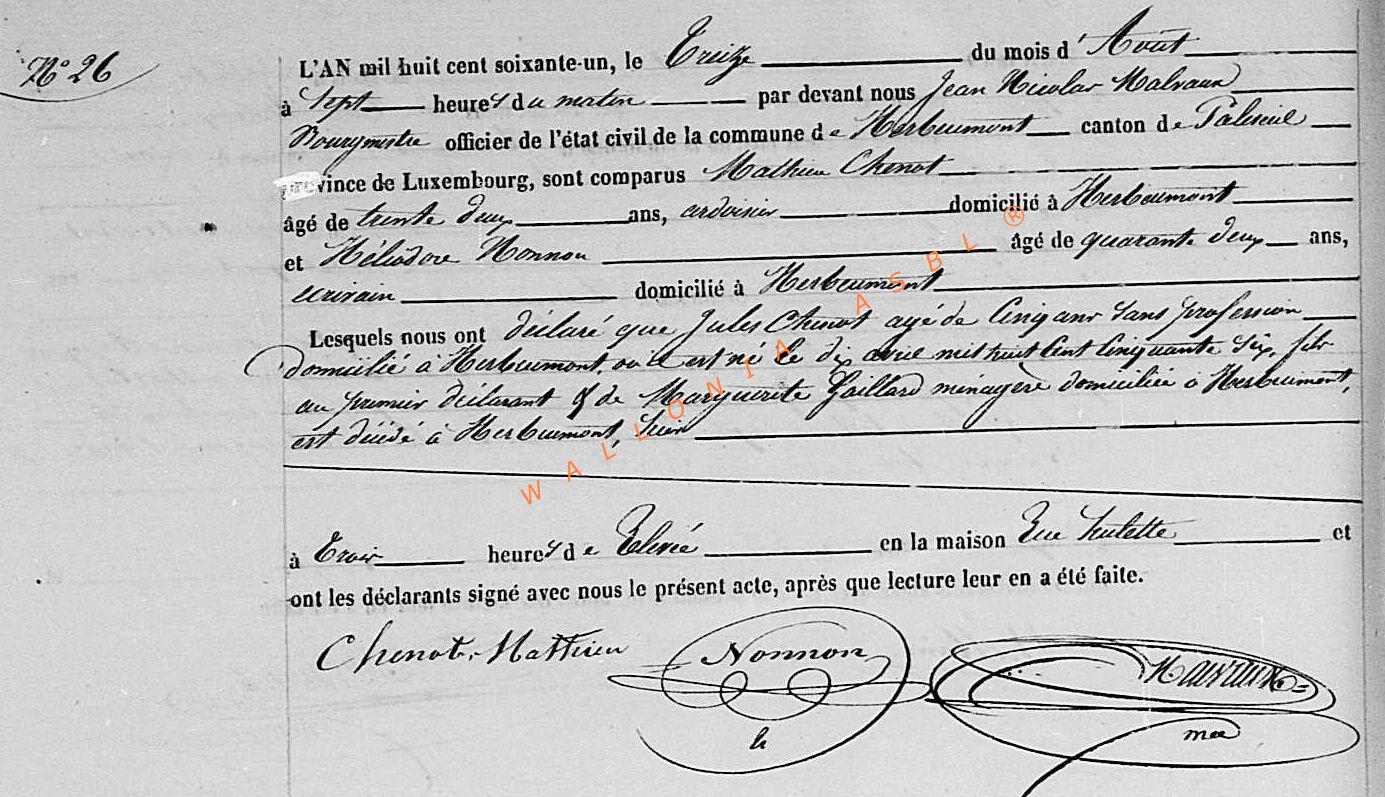 N° 26
L'AN mil huit cent soixante-un, le Treize du mois d'Août
à Sept heures du matin par devant nous Jean Nicolas Malvaux
Bourgmestre officier de l'état civil de la commune de Herbeumont canton de Paliseul
province de Luxembourg, sont comparus Mathieu Chenot
âgé de trente deux ans, ardoisier domicilié à Herbeumont
et Héliodore Nonnon âgé de quarante deux ans,
écrivain domicilié à Herbeumont
Lesquels nous ont déclaré que Jules Chenot agé de Cinq ans Sans profession
domicilié à Herbeumont, où il est né le dix avril mil huit Cent Cinquante Six, fils
au premier déclarant & de Marguerite Gaillard ménagère domiciliée à Herbeumont,
est décédé à Herbeumont, hier
à Trois heures de Relevée en la maison Rue et
ont les déclarants signé avec nous le présent acte, après que lecture leur en a été faite.
Chenot, Mathieu Nonnon
h
WALLONIA ASBL ®